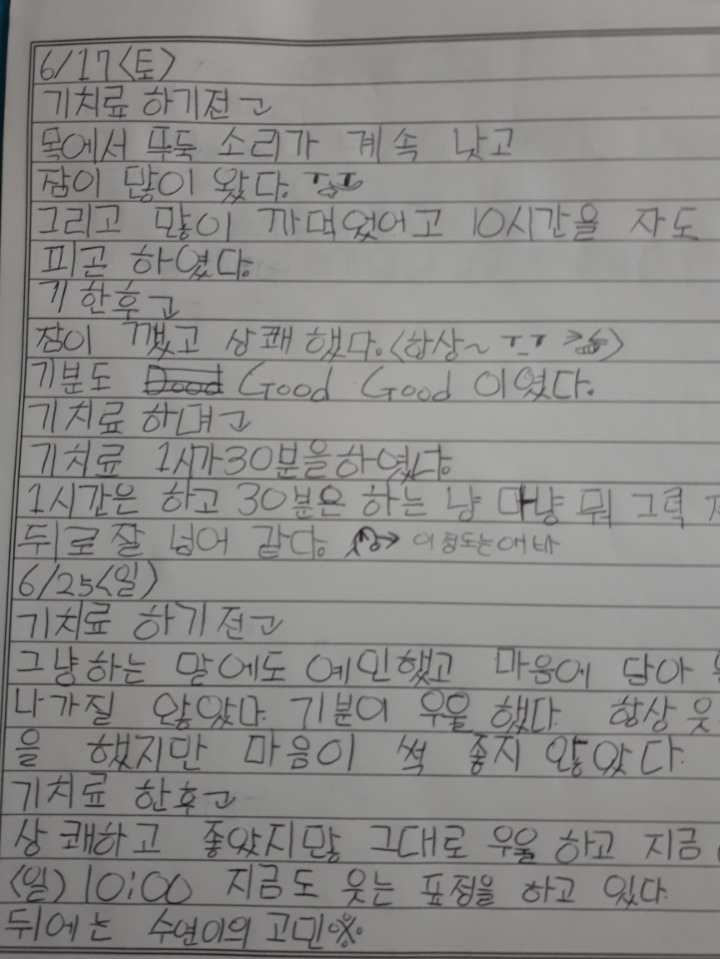 6/17<토>
기치료 하기전고
목에서 뚜둑 소리가 계속 낫고
잠이 많이 왔다. ㅜㅜ
그리고 많이 까먹었어고 10시간을 자도
피곤 하였다.
기 한후고
잠이 깼고 상쾌 했다.<항상~ ㅜㅜ>
기분도 Good Good 이였다.
기치료 하며고
기치료 1시가30분을하였다.
1시간은 하고 30분은 하는 냥 마냥 뭐 그럭
뒤로잘 넘어 같다. 이정도는애바
6/25<일>
기치료 하기전고
그냥하는 말에도 예민했고 마음에 담아
나가질 않았다. 기분이 우울 했다. 항상 웃
을 했지만 마음이 썩 좋지 않았다.
기치료 한후고
상쾌하고 좋았지많 그대로 우울 하고 지금
<일> 10:00 지금도 웃는 표정을 하고 있다.
뒤에는 수연이의 고민※